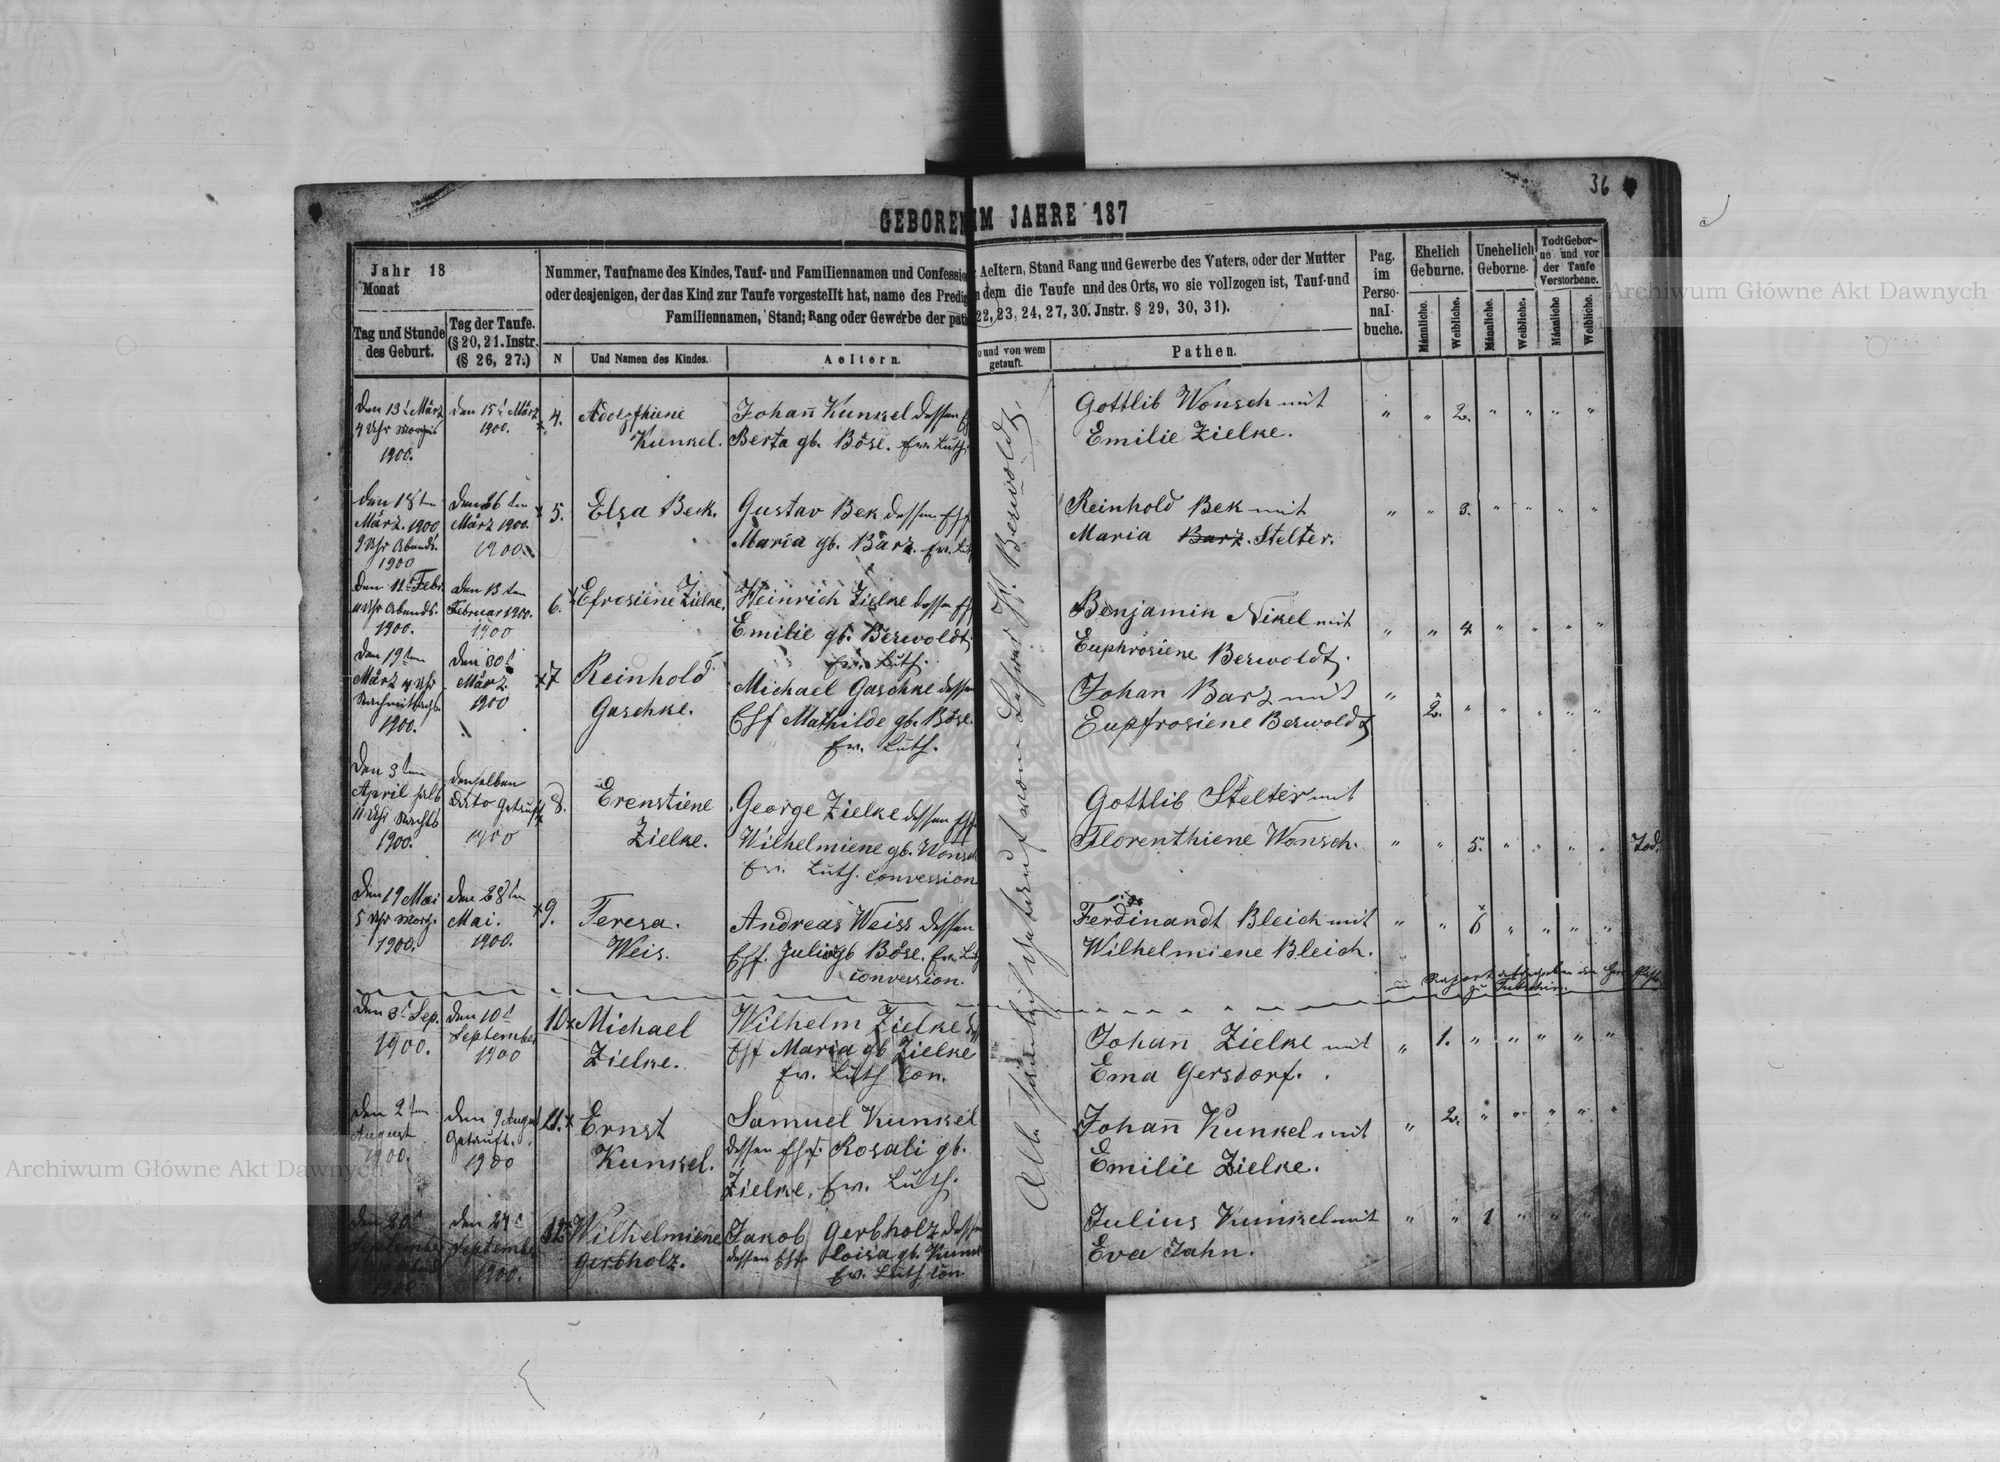 36
GEBOREN IM JAHRE 187
Jahr 18
Monat
Tag und Stunde des Geburt.
Tag der Taufe. (§ 20, 21. Instr. (§ 26, 27.)
Nummer, Taufname des Kindes, Tauf- und Familiennamen und Confession Aeltern, Stand Rang und Gewerbe des Vaters, oder der Mutter
oder desjenigen, der das Kind zur Taufe vorgestellt hat, name des Predig dem die Taufe und des Orts, wo sie vollzogen ist, Tauf-und
Familiennamen, Stand; Rang oder Gewerbe der pat 22, 23, 24, 27, 30. Jnstr. § 29, 30, 31).
N
Und Namen des Kindes.
Aeltern.
o und von wem getauft.
Pathen.
Pag. im Perso- nal- buche.
Ehelich Geburne.
Unehelich Geborne.
Todt Gebor- ne und vor der Taufe Verstorbene.
Männliche. Weibliche. Männliche. Weibliche. Männliche Weibliche.
Den 13t März 4 Uhr Morgens 1900.
Den 15t März 1900.
4.
Adolofhiene Kunkel.
Johann Kunkel dessen
Berta gb. Böse. Ev. Luth.
Gottlib Wonsch mit
Emilie Zielke.
" " 2. " " " "
Den 18ten März. 1900 9 Uhr Abends. 1900
Den 26ten März 1900. 1900
x 5.
Elsa Beck.
Gustav Bek dessen Ehf
Maria gb. Barz. Ev. Lut
Reinhold Bek mit
Maria Barz. Stelter.
" " 3. " " " "
Den 11t Febr. 11 Uhr Abends. 1900.
Den 13ten Februar 1900. 1900
6.
Efrosiene Zielke.
Heinrich Zielke dessen Ehf
Emilie gb. Berwoldt,
Ev. Luth.
Benjamin Nikel mit
Euphrosiene Berwoldt.
" " 4 " " " "
Den 19ten März 4 Uhr Nachmittags. 1900.
Den 30t März 1900
x 7
Reinhold
Gaschke.
Michael Gaschke dessen
Ehf Mathilde gb. Böse.
Ev. Luth.
Johan Barz mit
Eupfrosiene Berwoldt
" 2. " " " " "
Den 3ten April halb 11 Uhr Nachts 1900.
denselben Dato Getauft 1900
8.
Erenstiene
Zielke.
George Zielke dessen Ehf
Wilhelmiene gb. Wonsch
Ev. Luth. convession
Gottlib Stelter mit
Florenthiene Wonsch.
" " 5. " " " " Tod.
Den 19 Mai 5 Uhr Morg. 1900.
Den 28ten Mai. 1900.
x 9.
Teresa.
Weis.
Andreas Weiss dessen
Ehf. Juli gb Böse. Ev. Luth
convession.
Ferdinandt Bleich mit
Wilhelmiene Bleich.
" " 6 " " " "
Den 3t Sep. 1900.
Den 10t September 1900
10 x
Michael
Zielke.
Wilhelm Zielke
Ehf Maria gb Zielke
Ev. Luth Con.
Johan Zielke mit
Ema Gersdorf.
" 1. " " " " "
Den 2ten August 1900.
Den 9 August Getauft. 1900
11. x
Ernst
Kunkel.
Samuel Kunkel
dessen Ehf. Rosali gb.
Zielke, Ev. Luth.
Johann Kunkel mit
Emilie Zielke.
" 2. " " " " "
Den 20t September
Den 24t September 1900.
12
Wilhelmiene
Gerbholz.
Jakob Gerbholz dessen
dessen Ehf. Loisa gb. Kun
Ev. Luth Con
Julius Kunkel mit
Eva Jahn.
" " 1 " " "
getauft vom Lehrer Berwoldt.
Archiwum Główne Akt Dawnych
Archiwum Główne Akt Dawnych